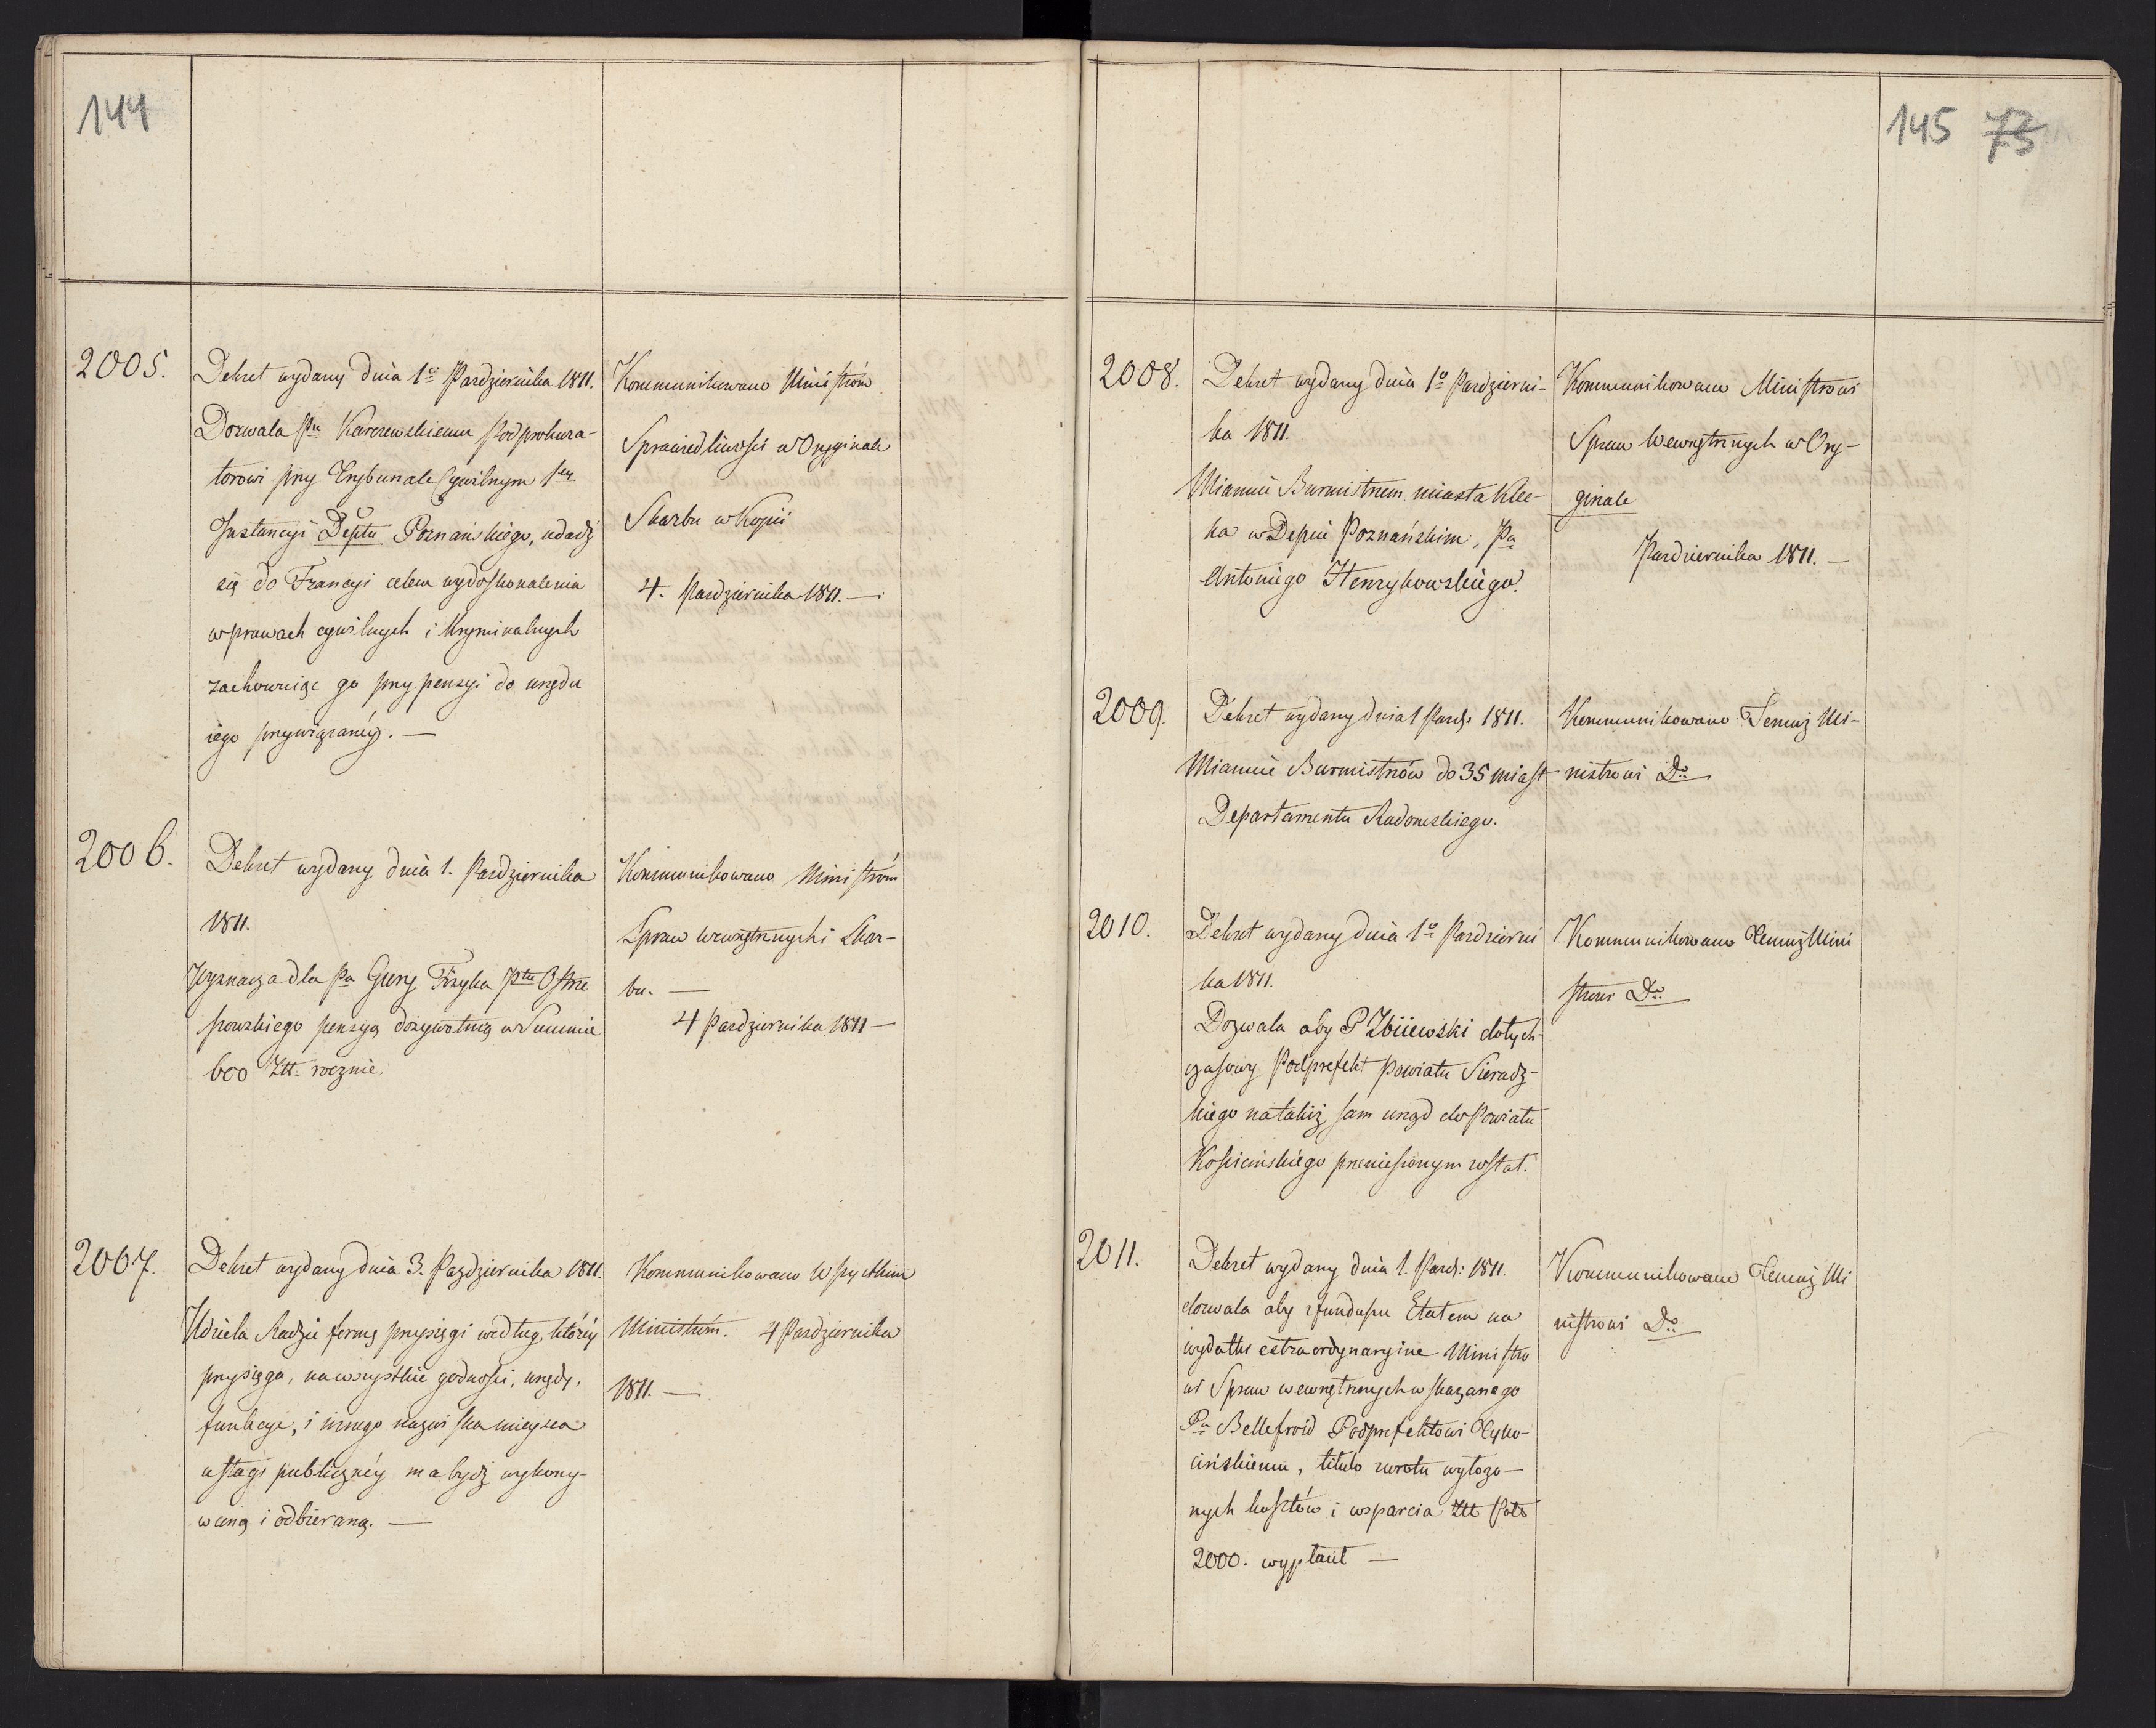 144
2005.
Dekret wydany dnia 1o Pazdziernika 1811.
Dozwala Pu Karczewskiemu Podprokura-
torowi przy Trybunale Cywilnym 1ey
Instancyi Deptu Poznańskiego, udadź
się do Francyi celem wydoskonalenia
w prawach cywilnych i Kryminalnych
zachowuiąc go przy pensyi do urzędu
iego przywiązanéy. —
Kommunikowano Ministróm
Sprawiedliwości w Oryginale
Skarbu w Kopii
4. Pazdziernika 1811. —
2006.
Dekret wydany dnia 1. Pazdziernika
1811.
Wyznacza dla Pa Gurey Fizyka Ptu Ostrze
szowskiego pensyą dożywotnią w Summie
600 Złł. rocznie.
Kommunikowano Ministróm
Spraw wewnętrznych i Skar-
bu. —
4 Pazdziernika 1811 —
2007.
Dekret wydany dnia 3. Pazdziernika 1811.
Udziela Radzie formę przysięgi według któréy
przysięga, na wszystkie godności, urzędy,
funkcye, i innego nazwiska mieysca
usługi publicznéy ma bydź wykony-
waną i odbieraną. —
Kommunikowano Wszystkim
Ministróm. 4 Pazdziernika
1811. —
145 73
2008.
Dekret wydany dnia 1o Pazdzierni-
ka 1811.
Mianuie Burmistrzem miasta Kłec-
ka w Depcie Poznańskim, Pa
Antoniego Henrykowskiego.
Kommunikowano Ministrowi
Spraw Wewnętrznych w Ory-
ginale
Pazdziernika 1811. —
2009.
Dekret wydany dnia 1 Pazd: 1811.
Mianuie Burmistrzów do 35 miast
Departamentu Radomskiego.
Kommunikowano Temuż Mi-
nistrowi Do
2010.
Dekret wydany dnia 1o Pazdzierni
ka 1811.
Dozwala aby P Zbiiewski dotych-
czasowy Podprefekt Powiatu Sieradz-
kiego na takiż sam urząd do Powiatu
Kościańskiego przeniesionym został.
Kommunikowano Temuż Mini
strowi Do
2011.
Dekret wydany dnia 1. Pazd: 1811.
dozwala aby z funduszu Etatem na
wydatki extraordynaryine Ministro
wi Spraw wewnętrznych wskazanego
Pu Bellefroid Podprefektowi Tyko-
cińskiemu, titulo zwrotu wyłożo-
nych kosztów i wsparcia Złł Pols
2000. wypłacił —
Kommunikowano Temuż Mi
nistrowi Do